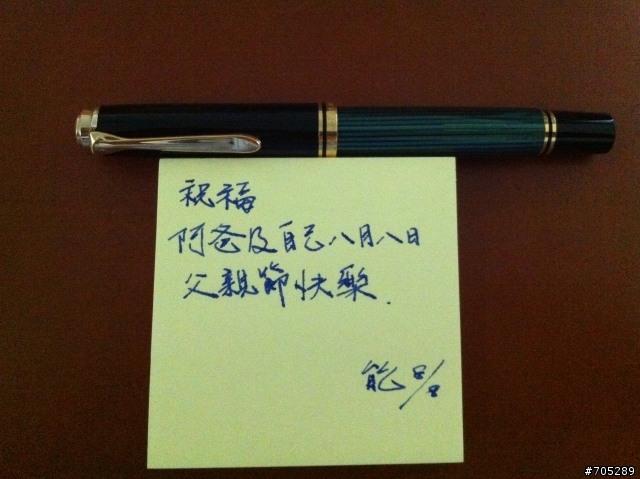 祝福
阿爸及自己八月八日
父親節快樂.
能 8/8
#705289